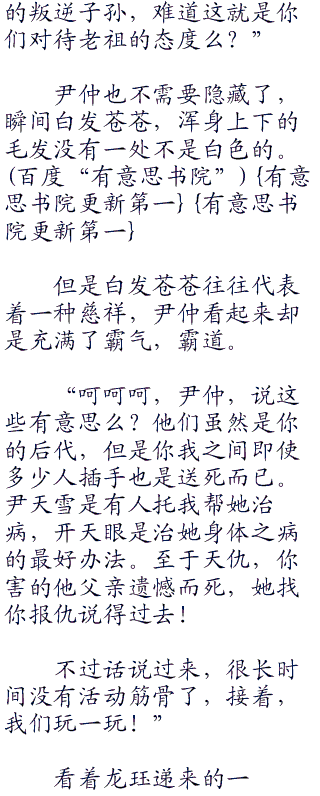 的叛逆子孙，难道这就是你
们对待老祖的态度么？”
尹仲也不需要隐藏了，
瞬间白发苍苍，浑身上下的
毛发没有一处不是白色的。
(百度“有意思书院”) {有意
思书院更新第一} {有意思书
院更新第一}
但是白发苍苍往往代表
着一种慈祥，尹仲看起来却
是充满了霸气，霸道。
“呵呵呵，尹仲，说这
些有意思么？他们虽然是你
的后代，但是你我之间即使
多少人插手也是送死而已。
尹天雪是有人托我帮她治
病，开天眼是治她身体之病
的最好办法。至于天仇，你
害的他父亲遗憾而死，她找
你报仇说得过去！
不过话说过来，很长时
间没有活动筋骨了，接着，
我们玩一玩！”
看着龙珏递来的一